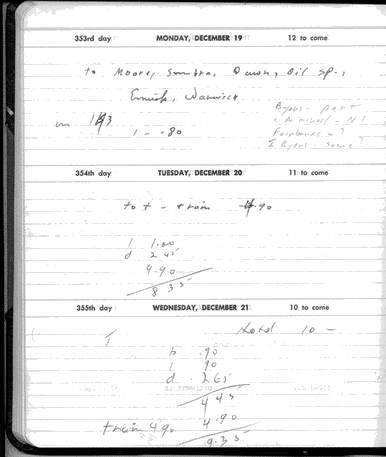 353rd day MONDAY, DECEMBER 19 12 to come
to Moore, Smithra, Dawn, Oil sp.,
Warwick
Byers - part
Fairbanks - ?
I Byers - some?
m 1
1 - .80
354th day TUESDAY, DECEMBER 20 11 to come
to t - train 4.90
l 1.00
d 2.45
4.90
8 35
355th day WEDNESDAY, DECEMBER 21 10 to come
T
hotel 10 -
b .90
l 90
d 2.65
4 45
train 4 90 4.90
9.35